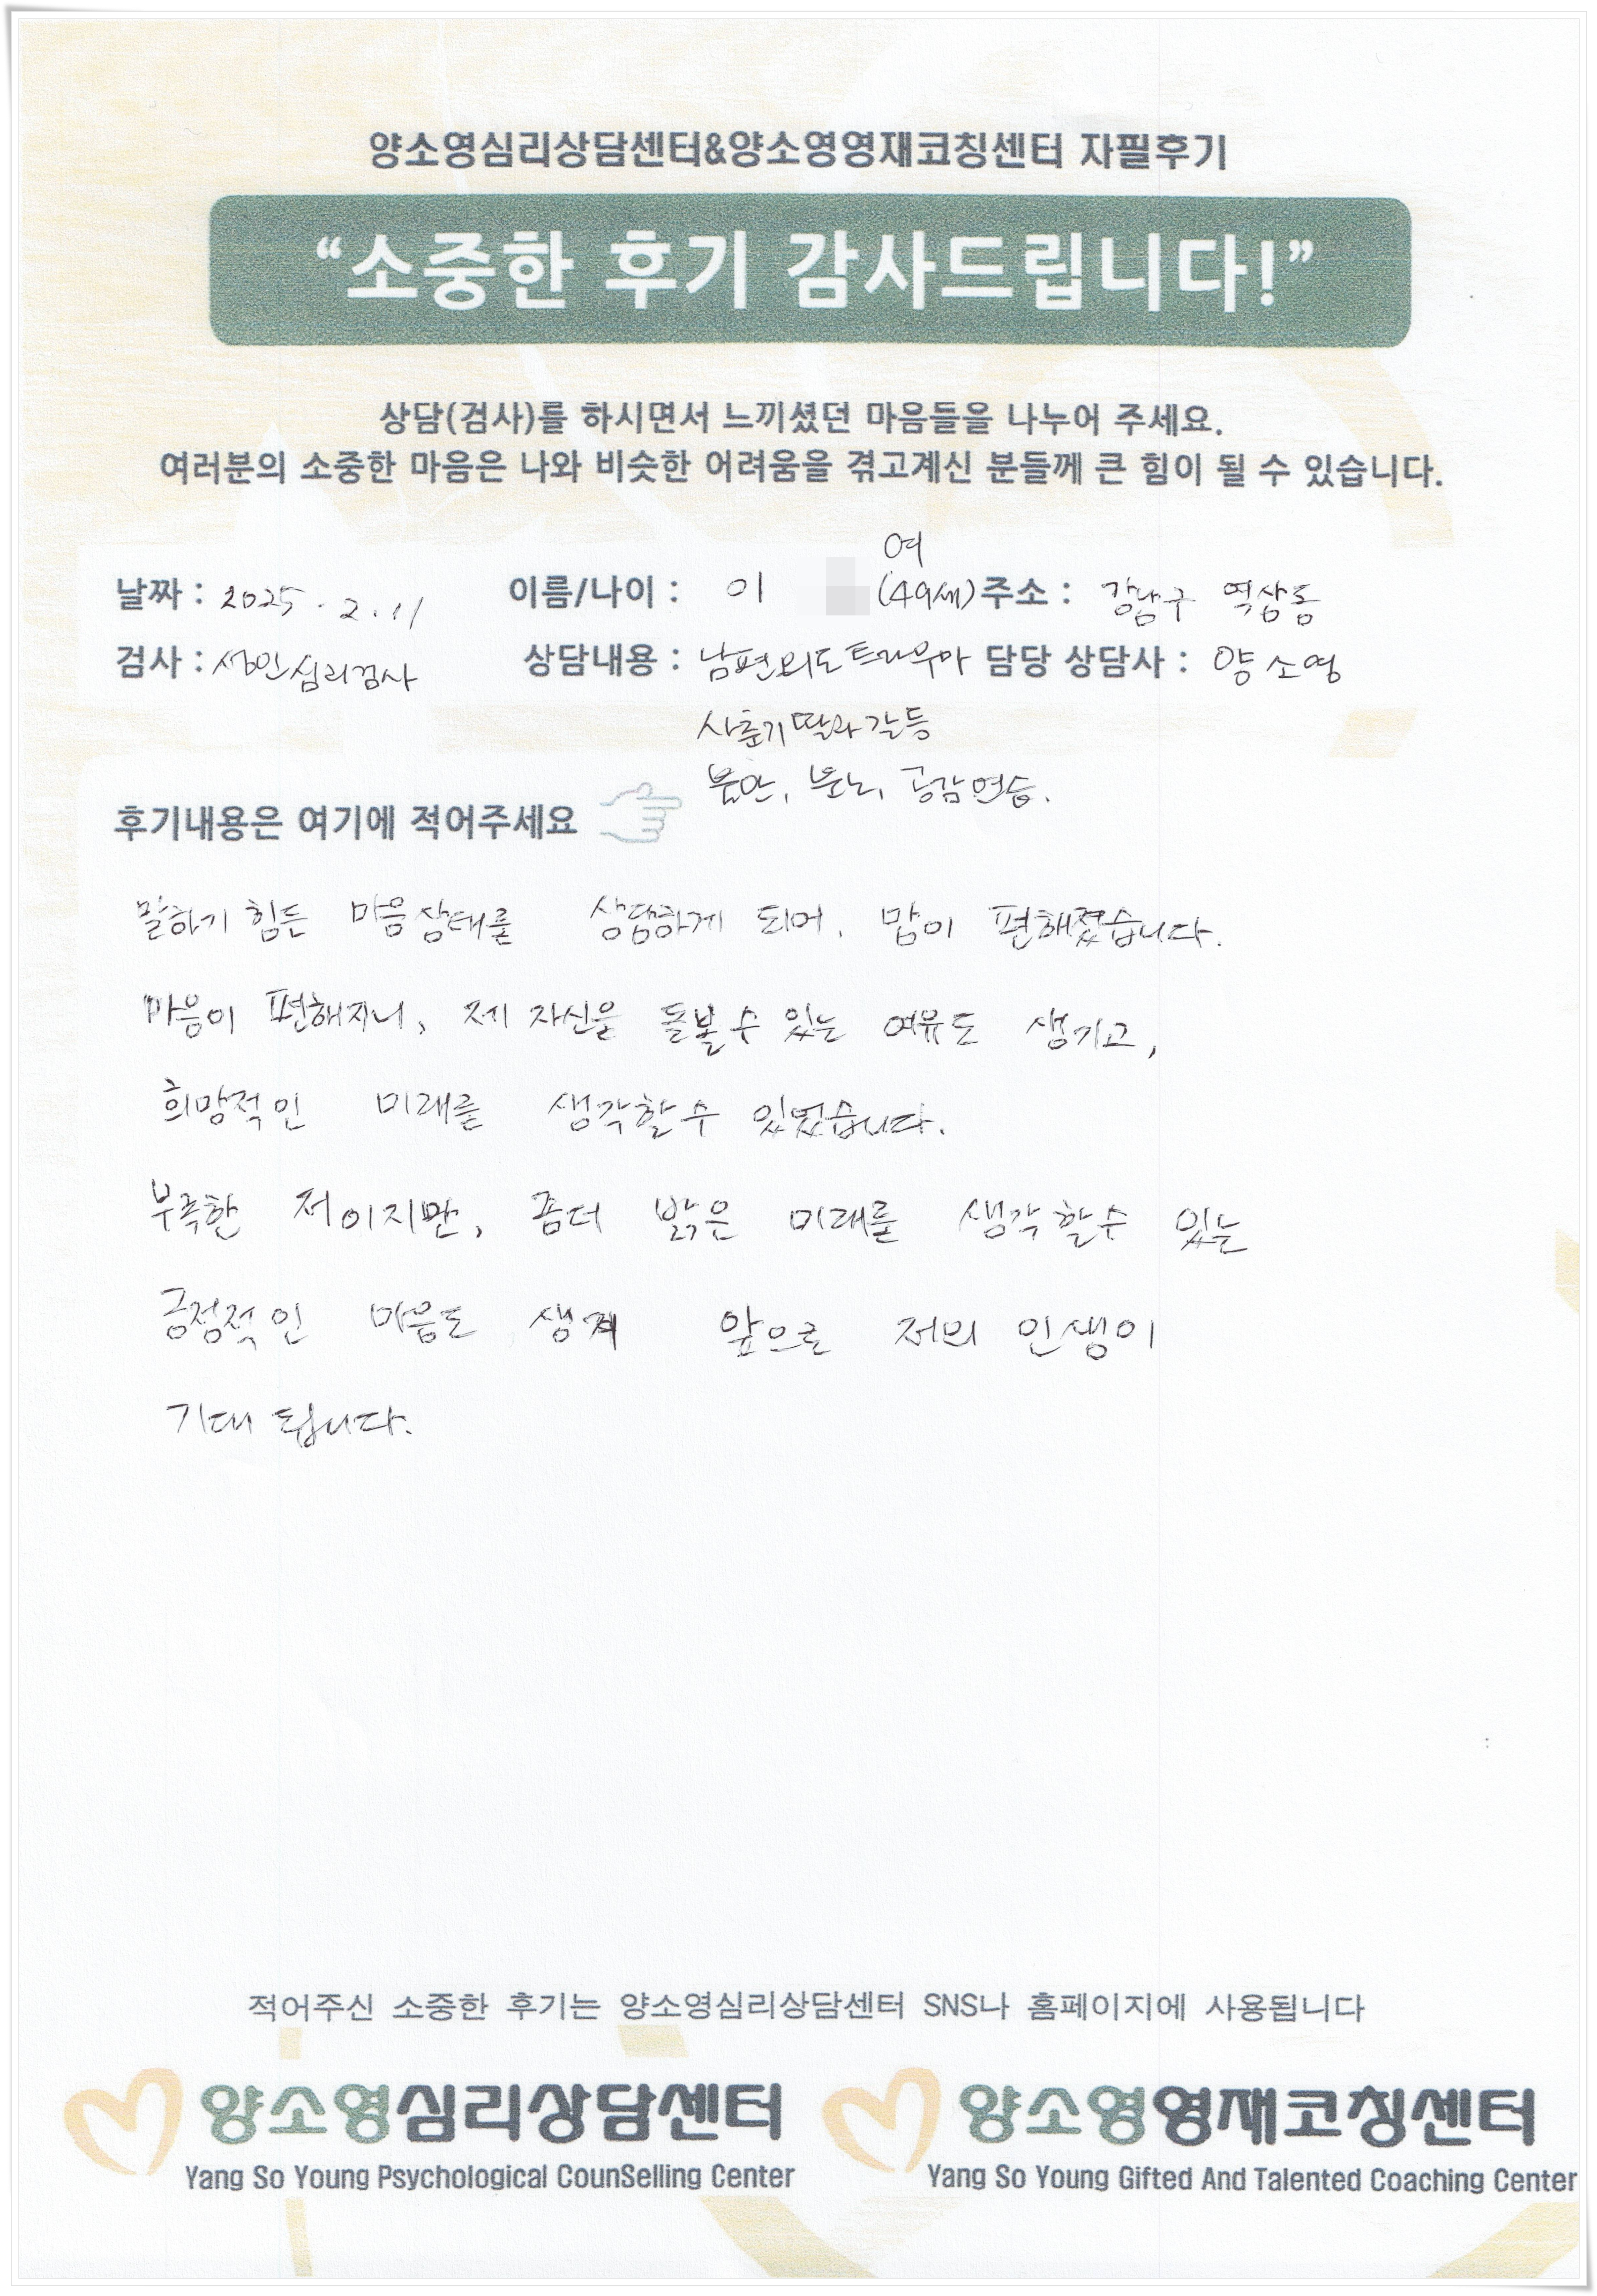 양소영심리상담센터&양소영영재코칭센터 자필후기
“소중한 후기 감사드립니다!”
상담(검사)를 하시면서 느끼셨던 마음들을 나누어 주세요.
여러분의 소중한 마음은 나와 비슷한 어려움을 겪고계신 분들께 큰 힘이 될 수 있습니다.
여
날짜 : 2025 . 2 . 11 이름/나이 : 이 (49세) 주소 : 강남구 역삼동
검사 : 성인심리검사 상담내용 : 남편외도트라우마 담당 상담사 : 양소영
사춘기딸과갈등
불안, 분노, 공감연습.
후기내용은 여기에 적어주세요
말하기 힘든 마음상태를 상담하게 되어, 많이 편해졌습니다.
마음이 편해지니, 제 자신을 돌볼수 있는 여유도 생기고,
희망적인 미래를 생각할수 있었습니다.
부족한 저이지만, 좀더 밝은 미래를 생각할수 있는
긍정적인 마음도 생겨 앞으로 저의 인생이
기대 됩니다.
적어주신 소중한 후기는 양소영심리상담센터 SNS나 홈페이지에 사용됩니다
양소영심리상담센터 양소영영재코칭센터
Yang So Young Psychological CounSelling Center Yang So Young Gifted And Talented Coaching Center